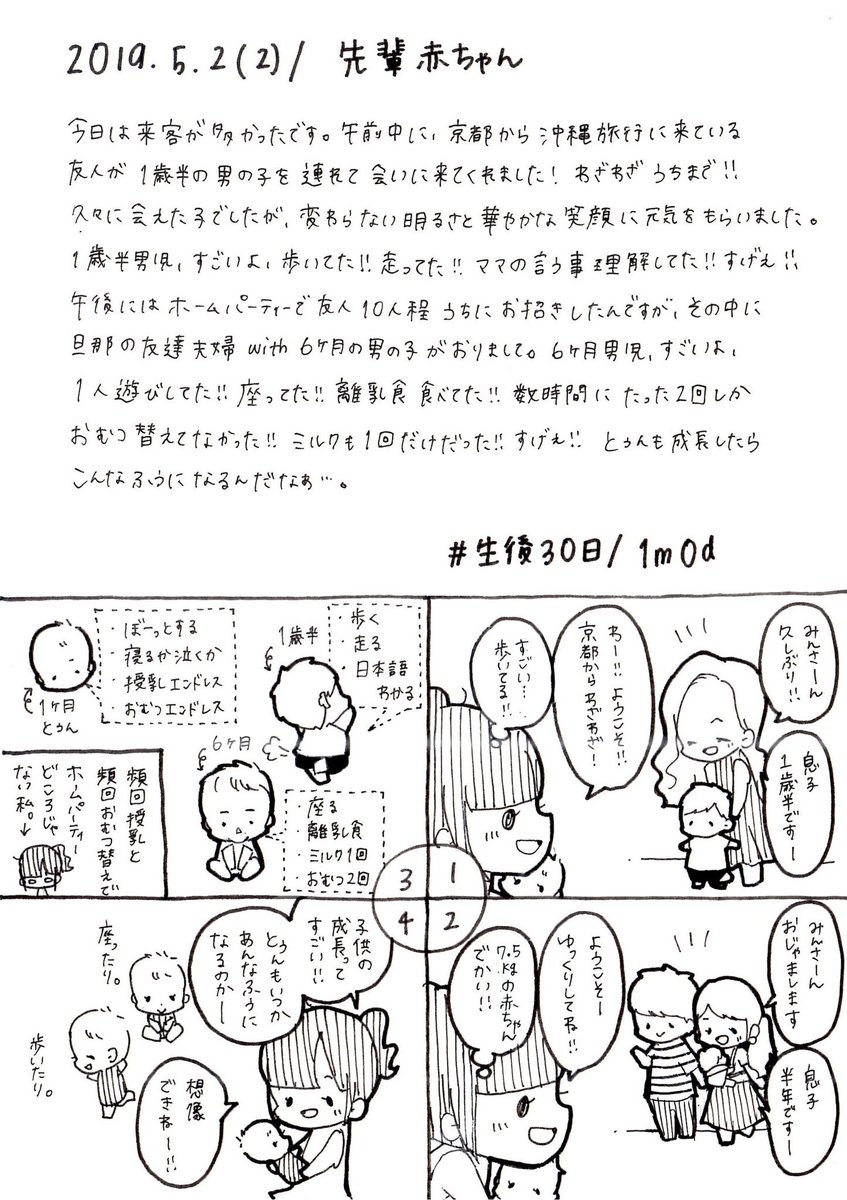 2019.5.2(2)/ 先輩赤ちゃん
今日は来客が多かったです。午前中に、京都から沖縄旅行に来ている
友人が1歳半の男の子を連れて会いに来てくれました！わざわざうちまで!!
久々に会えた子でしたが、変わらない明るさと華やかな笑顔に元気をもらいました。
1歳半男児、すごいよ、歩いてた!!走ってた!!ママの言う事理解してた!!すげぇ!!
午後にはホームパーティーで友人10人程うちにお招きしたんですが、その中に
旦那の友達夫婦with6ヶ月の男の子がおりまして。6ヶ月男児、すごいよ、
1人遊びしてた!!座ってた!!離乳食食べてた!!数時間にたった2回しか
おむつ替えてなかった!!ミルクも1回だけだった!!すげぇ!!とぅんも成長したら
こんなふうになるんだなぁ…。
#生後30日/1m0d
みんさーん
久しぶり!!
息子
1歳半ですー
わー!!ようこそ!!
京都からわざわざ！
すごい…
歩いてる!!
1
みんさーん
おじゃまします
息子
半年ですー
ようこそー
ゆっくりしてね!!
7.5kgの赤ちゃん
でかい!!
2
1歳半
・歩く
・走る
・日本語
わかる
・ぼーっとする
・寝るか泣くか
・授乳エンドレス
・おむつエンドレス
1ヶ月
とぅん
6ヶ月
・座る
・離乳食
・ミルク1回
・おむつ2回
頻回授乳と
頻回おむつ替えで
ホームパーティー
どころじゃ
ない私。
3
子供の
成長って
すごい!!
とぅんもいつか
あんなふうに
なるのかー
座ったり。
歩いたり。
想像
できねー!!
4